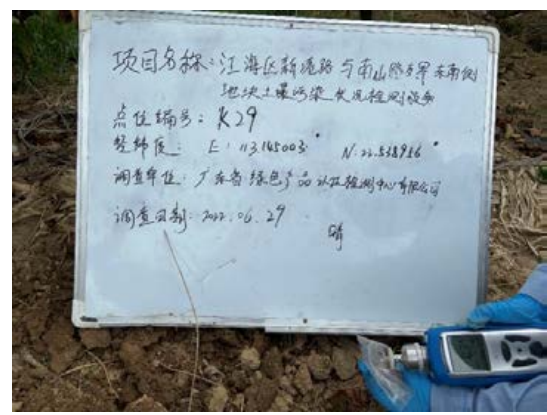 项目名称:江海区新港路与南山路交界东南侧
地块土壤污染状况检测服务
点位编号:K29
经纬度: E:113.165003° N:22.538956°
调查单位:广东省绿色产品认证检测中心有限公司
调查日期:2022.06.29 晴